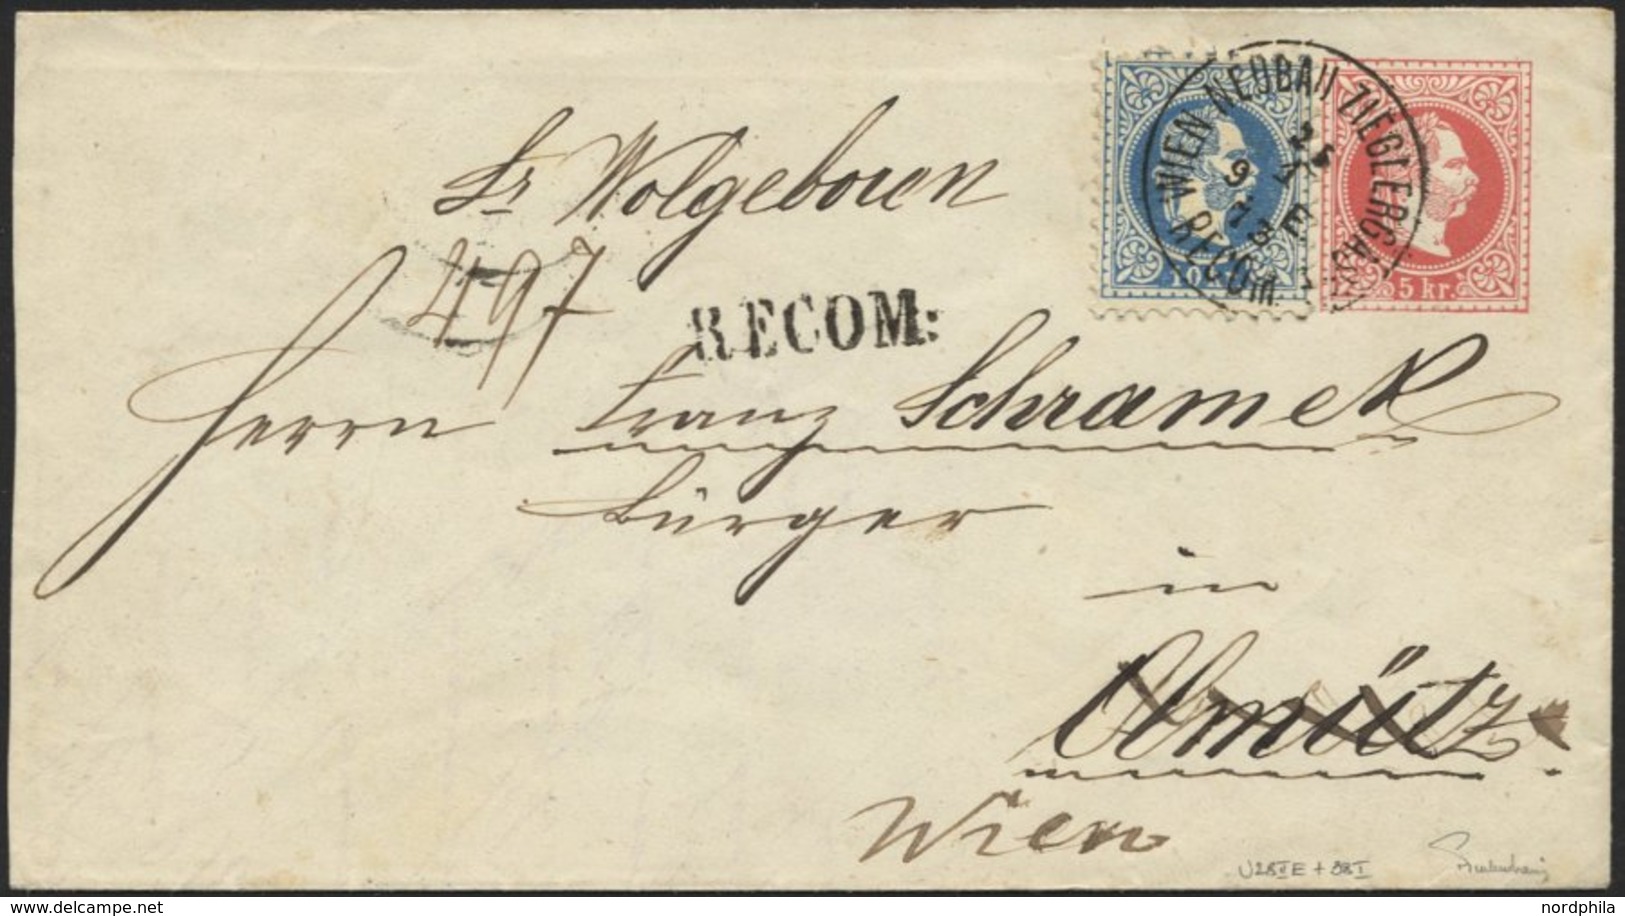 Sr Wolgeboren
497
RECOM:
WIEN NEUBAU ZIEGLERGASSE
RECOM.
25
9
73
E
10
5 kr.
Herrn Franz Schramek
Bürger
in
Olmütz
Wien
U28IIE + 38I
www.delcampe.net
nordphila